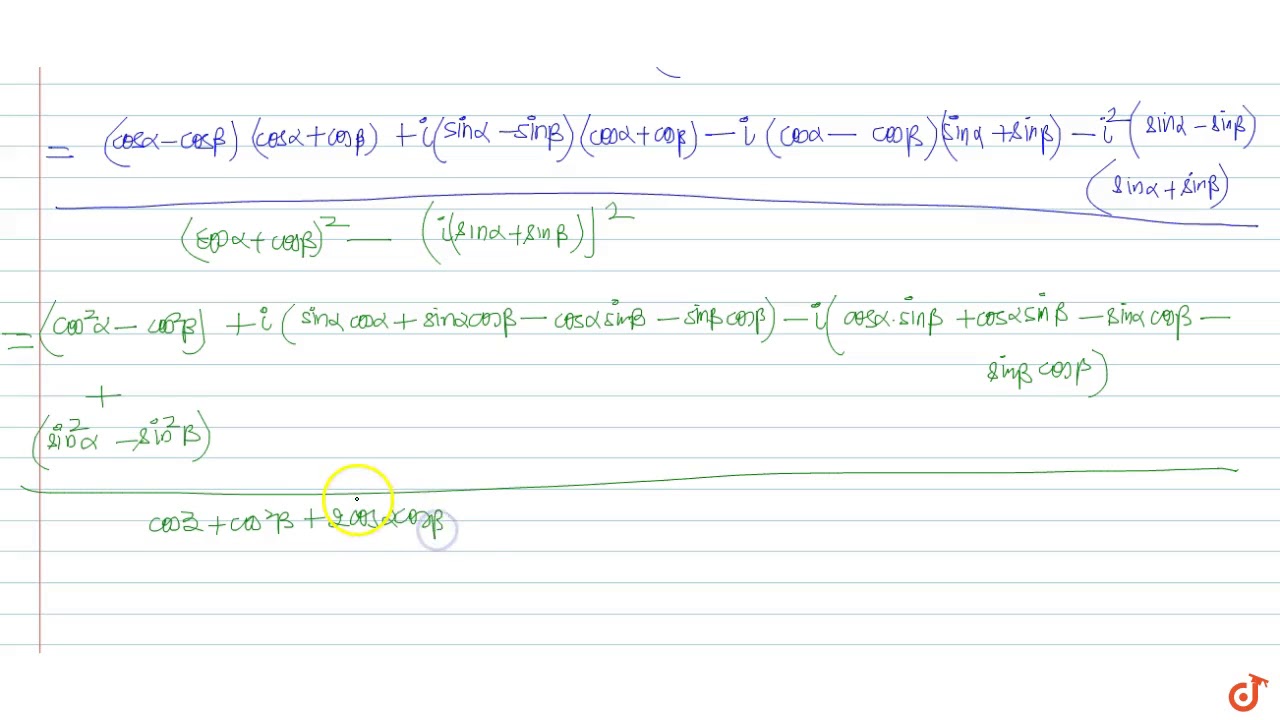 = (cosα - cosβ) (cosα + cosβ) + i(sinα - sinβ)(cosα + cosβ) - i(cosα - cosβ)(sinα + sinβ) - i²(sinα - sinβ)
(sinα + sinβ)
(cosα + cosβ)² - (i(sinα + sinβ)]²
= (cos²α - cos²β] + i(sinα cosα + sinαcosβ - cosαsinβ - sinβcosβ) - i(cosα.sinβ + cosαsinβ - sinαcosβ -
sinβcosβ)
+
(sin²α - sin²β)
cos²α + cos²β + 2cosαcosβ